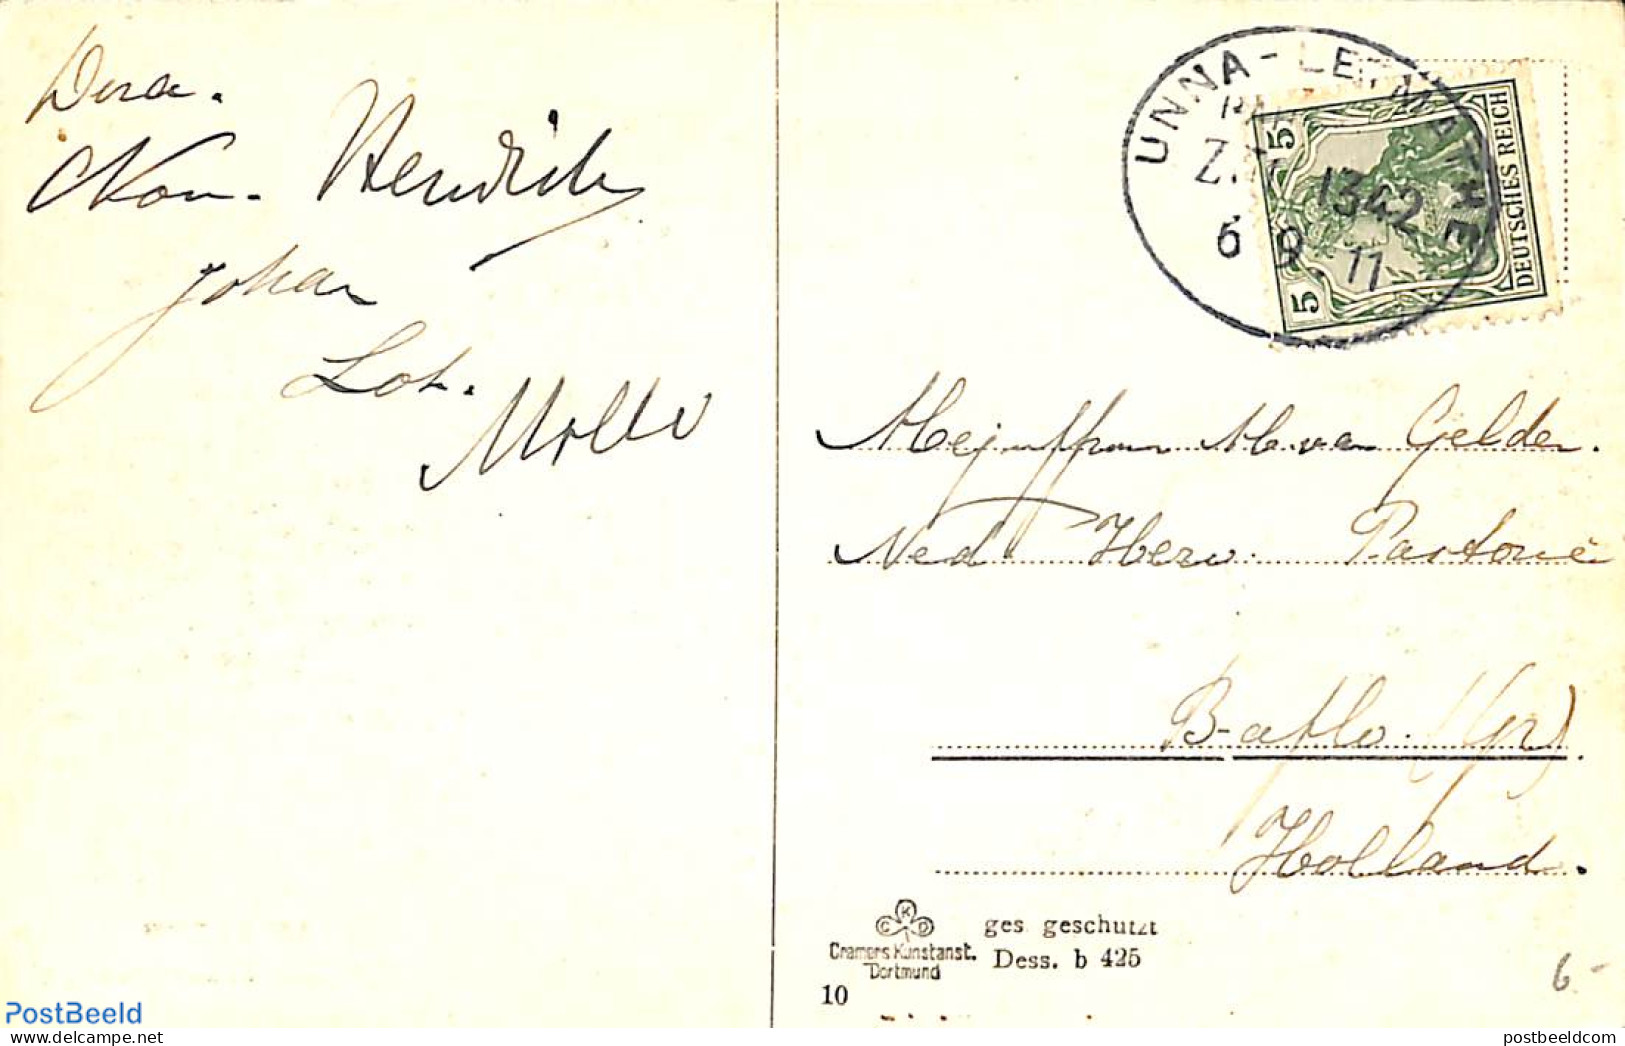 Dera.
Nom. Hendrik
Johan
Lot.
Molle
UNNA-LETMATHE
BAHN
Z. 1342
6 9. 11
5 5
DEUTSCHES REICH
Mejuffrouw M. van Gelden.
Ned Herv. Pastorie
B-aflo. (Gr)
Holland.
C K D
Cramers Kunstanst.
Dortmund
ges. geschützt
Dess. b 425
10
6-
PostBeeld
postbeeldcom